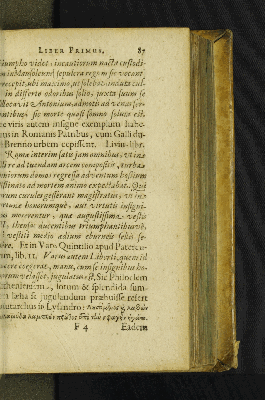 LIBER PRIMUS. 87
triumpho videt, incautiorum nacta custodi-
am in Mausoleum (sepulcra regum sic vocant)
recepit, ubi maximo, ut solebat, induta cul-
in differto odoribus solio, juxta suum se
locavit Antonium, admotisque ad venas ser-
pentibus, sic morte quasi somno soluta est.
viris autem insigne exemplum habe-
mus in Romanis Patribus, cum Galli du-
Brenno urbem cepissent. Liviu. lib.
Romæ interim satis jam omnibus, ut in
re ad tuendam arcem compositis, turba
seniorum domos regressi adventum hostium
obstinato ad mortem animo expectabat. Qui
eorum curules gesserant magistratus, ut in
fortunæ honorumque, aut virtutis insigni-
bus morerentur, quæ augustissima vestis
thensas ducentibus triumphantibusve,
vestiti medio ædium eburneis sellis se-
dere. Et in Varo Quintilio apud Patercu-
lum, lib. 11. Varus autem
manu, cum se insignibus ho-
norum velasset, jugulatus est. Sic Philoclem
Atheniensem, lotum & splendida sum-
læna se jugulandum præbuisse refert
Plutarchus in Lysandro:
F 4 Eadem